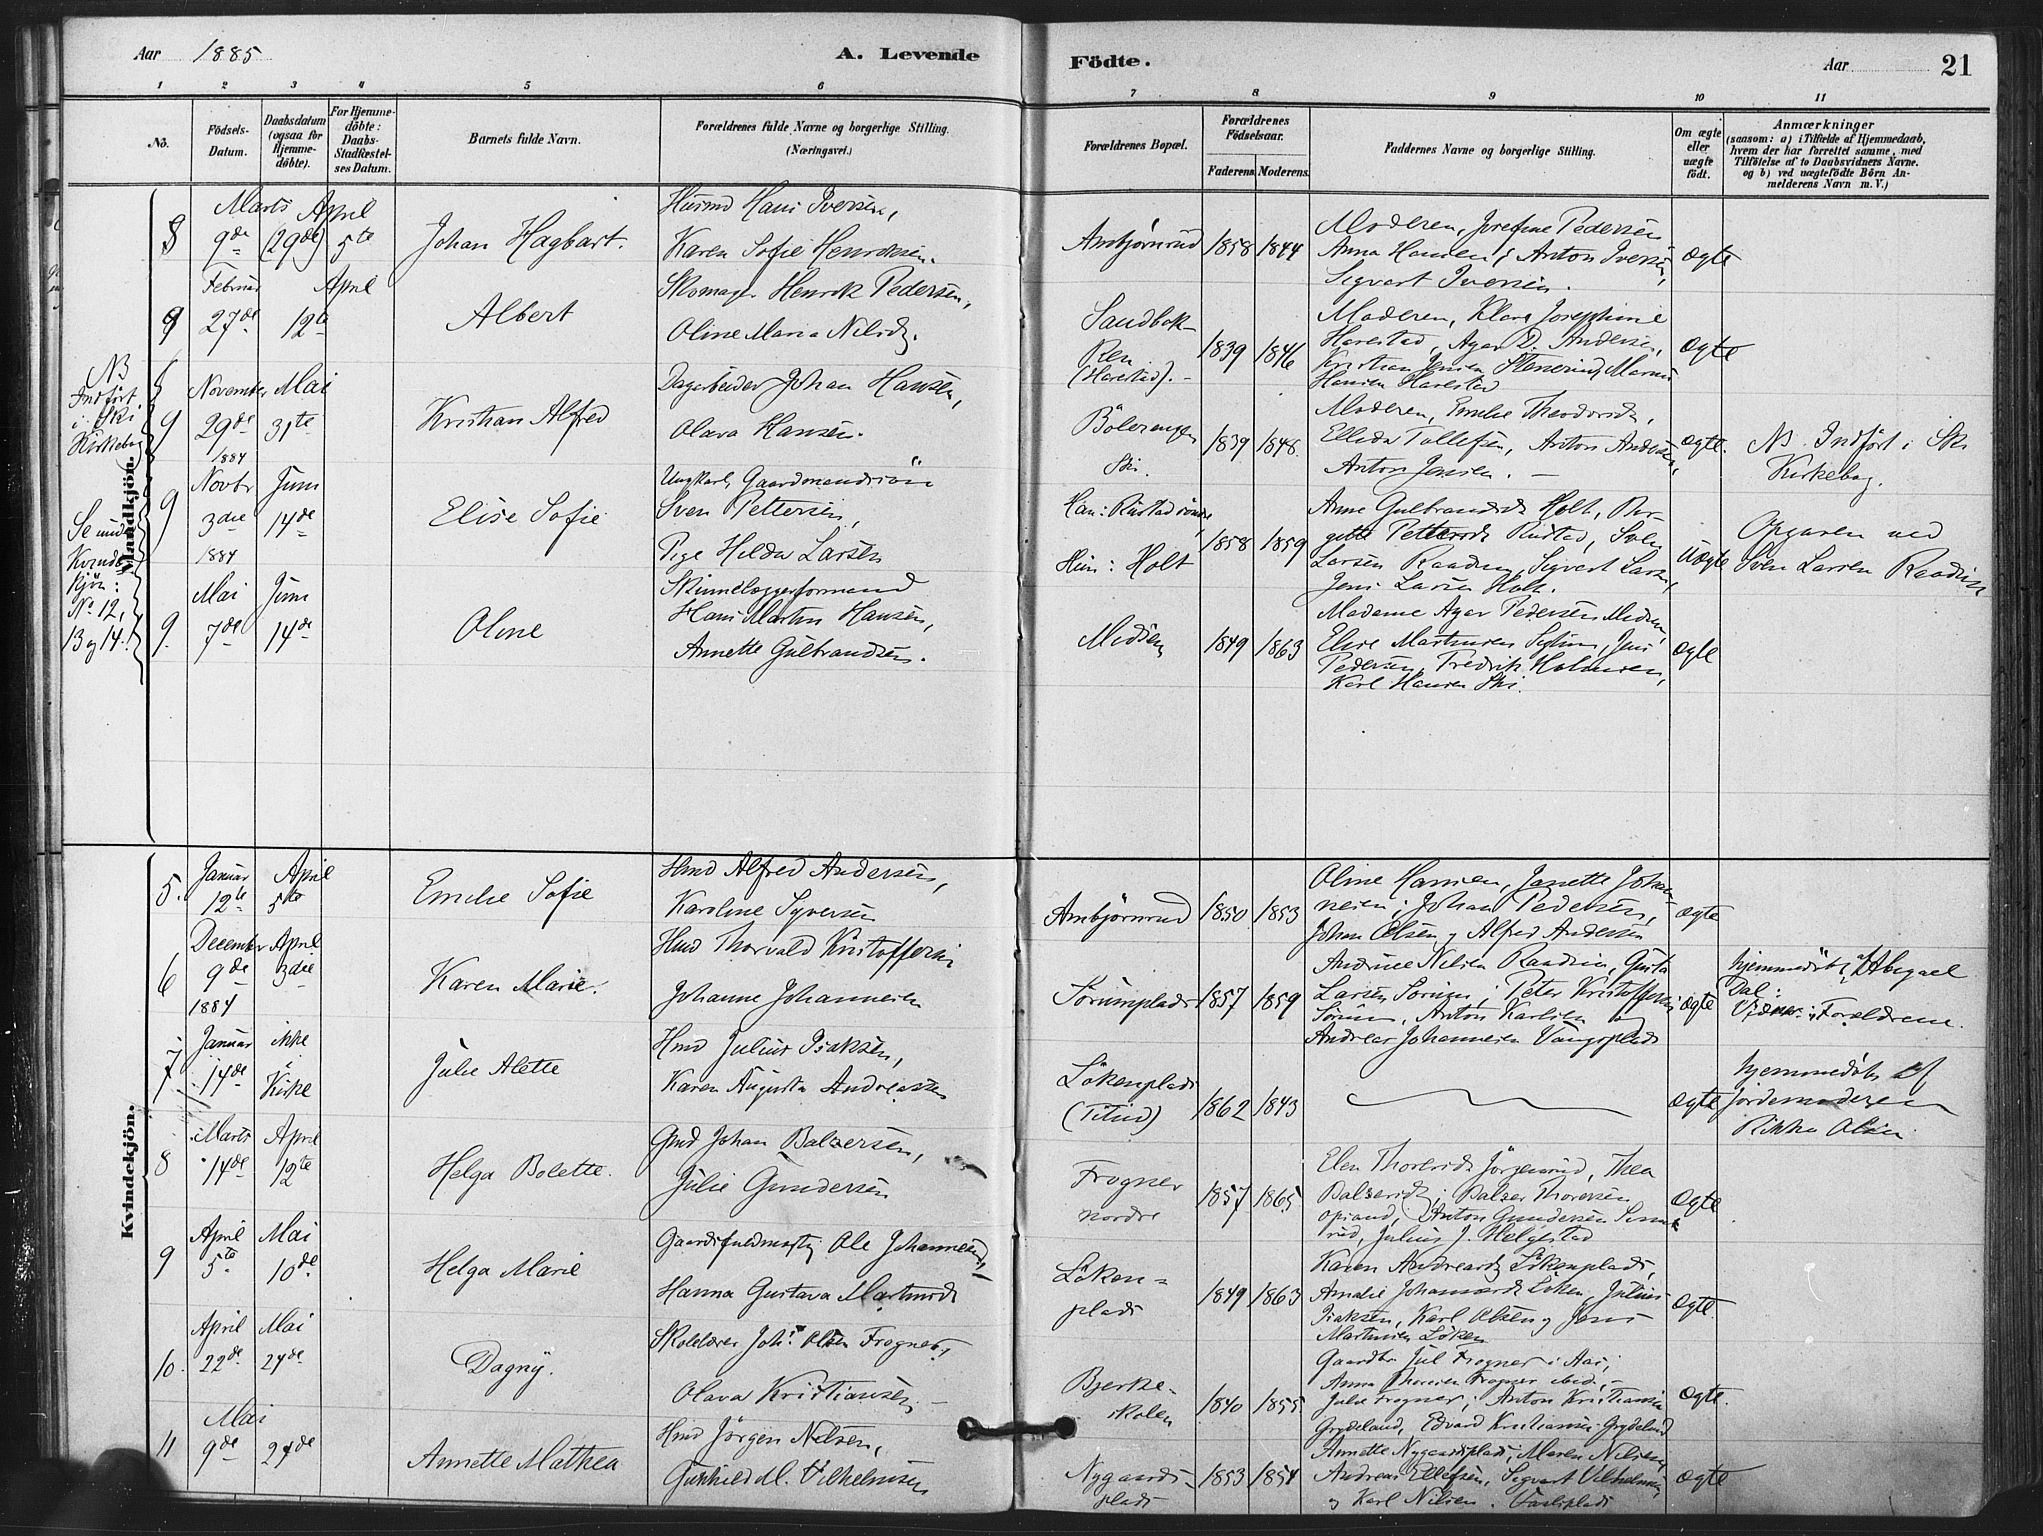 Aar 1885
A. Levende
Födte.
Aar
21
1 2 3 4 5 6 7 8 9 10 11
No.
Födsels-Datum.
Daabsdatum (ogsaa for Hjemmedöbte).
For Hjemmedöbte: Daabs-Stadfæstelses Datum.
Barnets fulde Navn.
Forældrenes fulde Navne og borgerlige Stilling. (Næringsvei.)
Forældrenes Bopæl.
Forældrenes Födselsaar.
Faderens Moderens
Faddernes Navne og borgerlige Stilling.
Om ægte eller uægte födt.
Anmærkninger
(saasom: a) i Tilfælde af Hjemmedaab, hvem der har forrettet samme, med Tilföielse af to Daabsvidners Navne. og b) ved uægtefödte Börn Anmelderens Navn m. V.)
Mandkjön.
8
Marts 9de
(29de)
April 5te
Johan Hagbart.
Husmd Hans Iversen,
Karen Sofie Henriksen.
Ambjørnrud
1858 1844
Moderen, Josefine Pedersen
Anna Hansen; Anton Iversen,
Sigvart Iversen.
Ægte
9
Februar 27de
April 12te
Albert
Skomager Henrik Pedersen,
Oline Maria Nilsd.
Sandbak-
Ren
(Harestad).
1839 1846
Moderen, Klara Josephine
Harestad, Agar D. Andersen,
Kristian Jensen Stenerud, Marius
Hansen Harestad
Ægte
NB
Indført
i Ski
Kirkebog
9
November 29de 1884
Mai 31te
Kristian Alfred
Dagarbeider Johan Hansen,
Olava Hansen.
Bölerengen
Ski.
1839 1848.
Moderen, Emilie Theodorsd.,
Ellida Tollefsen, Anton Andersen,
Anton Jensen.
Ægte.
NB Indført i Ski
Kirkebog.
Se under
Kvinde
kjön:
No 12,
13 og 14.
9
Novbr 3die 1884
Juni 14de
Elise Sofie
Ungkarl, Gaardmandssön
Sven Pettersen,
Pige Hilda Larsen
Han: Rustad söndre,
Hun: Holt
1858 1859
Anne Gulbrandsd. Holt, Bir-
gitte Pettersd. Rustad, Sven
Larsen Raaden, Sigvart Larsen,
Jens Larsen Holt.
Uægte
Opgaven ved
Sven Larsen Raaden
9.
Mai 7de
Juni 14de
Oline
Skinnelæggerformand
Hans Martin Hansen,
Annette Gulbrandsen.
Midsen
1849 1863
Madame Agar Pedersen Midsen,
Elise Martinsen, Jens
Pedersen, Fredrik Halvorsen,
Karl Hansen Ski.
Ægte
Kvindekjön.
5.
Januar 12te
April 5te
Emilie Sofie
Hmd Alfred Andersen,
Karoline Syversen
Ambjørnrud
1850 1853
Oline Hansen, Janette Johan-
nesen; Johan Pedersen,
Johan Olsen og Alfred Andersen
Ægte
6
December 9de 1884
April 3die
Karen Marie.
Hmd Thorvald Kristoffersen
Johanne Johannesen
Sörumplads
1857 1859
Andrine Nilsen Raaden, Gusta
Larsen Sörum; Peter Kristoffersen
Sörum, Anton Karlsen og
Andreas Johannesen Vangsplads
Ægte
hjemmedöbt af Abigael
Dal:
Vidner: Forældrene.
7
Januar 14de
ikke
i
Kirke
Julie Alette
Hmd Julius Isaksen,
Karen Augusta Andreassen
Lökenplads
(Titud)
1862 1843
Ægte
hjemmedöbt af
Jordemoderen
Rikka Olsen
8
Marts 14de
April 12te
Helga Bolette.
Gmd Johan Balzersen,
Julie Gundersen
Frogner
nordre
1857 1865
Elen Thoresd. Jörgensrud, Thea
Balzersd.; Balzer Thoresen
opsand, Anton Gundersen
rud, Julius J. Helgestad
Ægte
9
April 5te
Mai 10de
Helga Marie
Gaardsfuldmægtig Ole Johannesen,
Hanna Gustava Martinsd.
Löken-
plads
1849 1863
Karen Andreasd. Lökenplads,
Amalie Johannesd. Löken, Julius
Isaksen, Karl Olsen og Jens
Martinsen Löken
Ægte.
10.
April 22de
Mai 24de
Dagny.
Skolelærer Johs. Olsen Frogner,
Olava Kristiansen.
Bjerke-
skolen
1840 1855.
Gaardbr. Jul Frogner i Aas,
Anna Thoresen Frogner ibid.,
Julie Frogner; Anton Kristiansen
Grydeland, Edvard Kristiansen Grydeland
Ægte.
11
Mai 9de
24de
Annette Mathea
Hmd Jörgen Nilsen,
Gunhild M. Vilhelmsen
Nygaards-
plads
1853 1854
Annette Nygaardsplads, Maren Nilsen,
Andreas Ellefsen, Sigvart Vilhelmsen
og Karl Nilsen.
Ægte